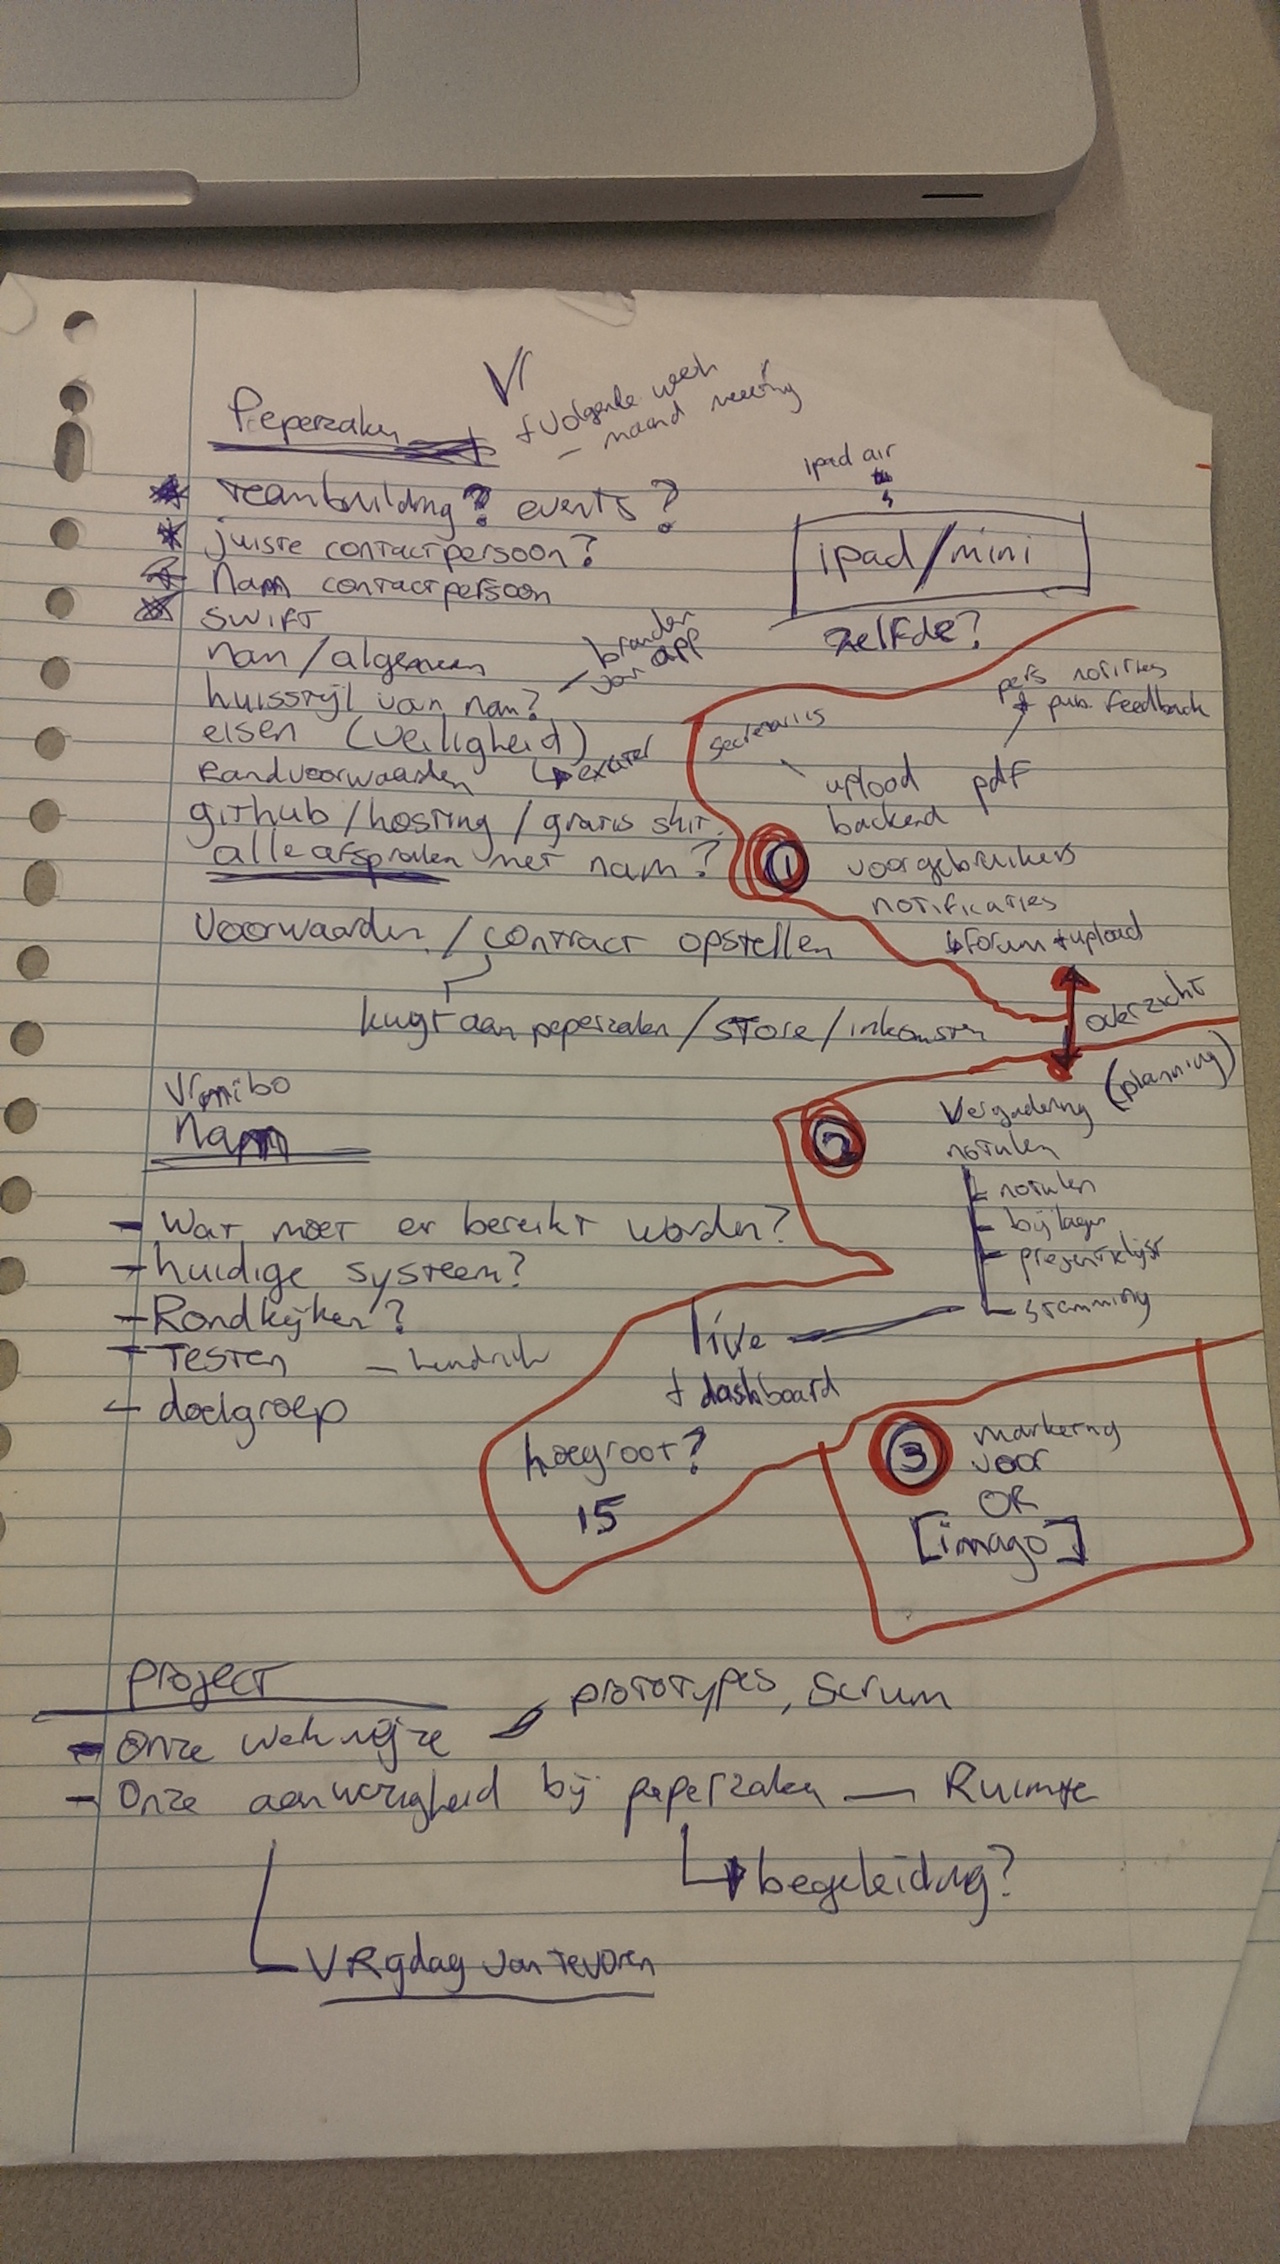 Peperzaken
Vr
+ volgende week
- maand meeting
ipad air
* Teambuilding? events?
* juiste contactpersoon?
* Nam contactpersoon
* SWIFT
ipad/mini
zelfde?
nam/algemeen
branden
voor app
huisstijl van nam?
eisen (veiligheid)
Randvoorwaarden
github/hosting/gratis shit.
alle afspraken met nam?
Voorwaarden / contract opstellen
krijgt aan peperzaken/store/inkomsten
secretaris
pers notities
+ pub. Feedback
upload pdf
backend
1
voor gebruikers
notificaties
forum + upload
overzicht
(planning)
2
Vergadering
notulen
notulen
bijlagen
presentielijst
stemming
live
+ dashboard
hoe groot?
15
3
marketing
voor
OR
[imago]
Vrmibo
Nam
- Wat moet er bereikt worden?
- huidige systeem?
- Rondkijken?
- Testen - hendrik
- doelgroep
project
- Onze werkwijze
prototypes, Scrum
- Onze aanwezigheid bij peperzaken — Ruimte
begeleiding?
Vrijdag van tevoren